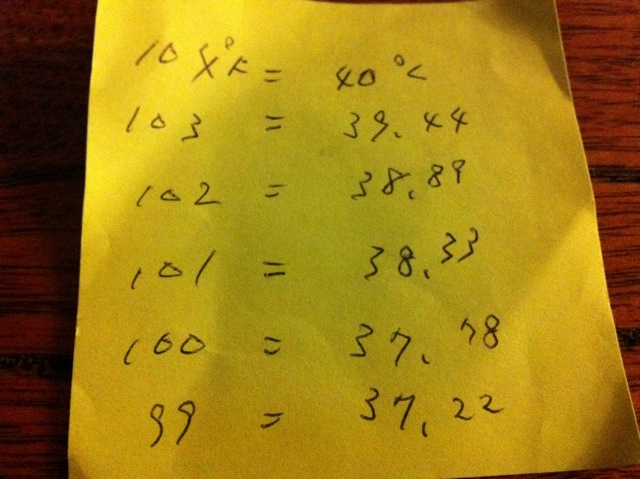 104°F = 40°C
103 = 39.44
102 = 38.89
101 = 38.33
100 = 37.78
99 = 37.22